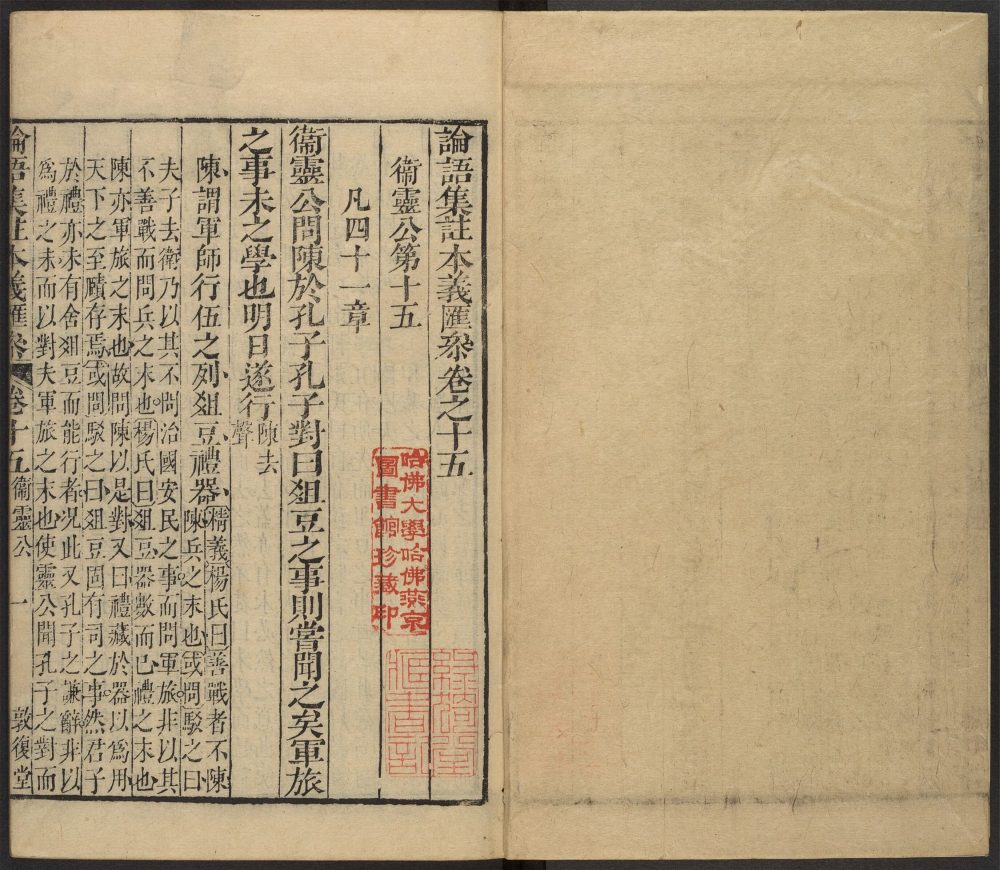 論語集註本義匯叅卷之十五
衞靈公第十五
凡四十一章
衞靈公問陳於孔子孔子對曰爼豆之事則嘗聞之矣軍旅
之事未之學也明日遂行陳去
聲
陳謂軍師行伍之列爼豆禮器精義楊氏曰善戰者不陳
陳兵之末也或問駁之曰
夫子去衛乃以其不問治國安民之事而問軍旅非以其
不善戰而問兵之末也楊氏曰爼豆器數而已禮之末也
陳亦軍旅之末也故問陳以是對又曰禮藏於器以爲用
天下之至賾存焉或問駁之曰爼豆固有司之事然君子
於禮亦未有舍爼豆而能行者况此又孔子之謙辭非以
爲禮之末而以對夫軍旅之末也使靈公聞孔子之對而
論語集註本義匯叅 卷十五 衞靈公 一 敦復堂
哈佛大學哈佛燕京
圖書館珍藏印